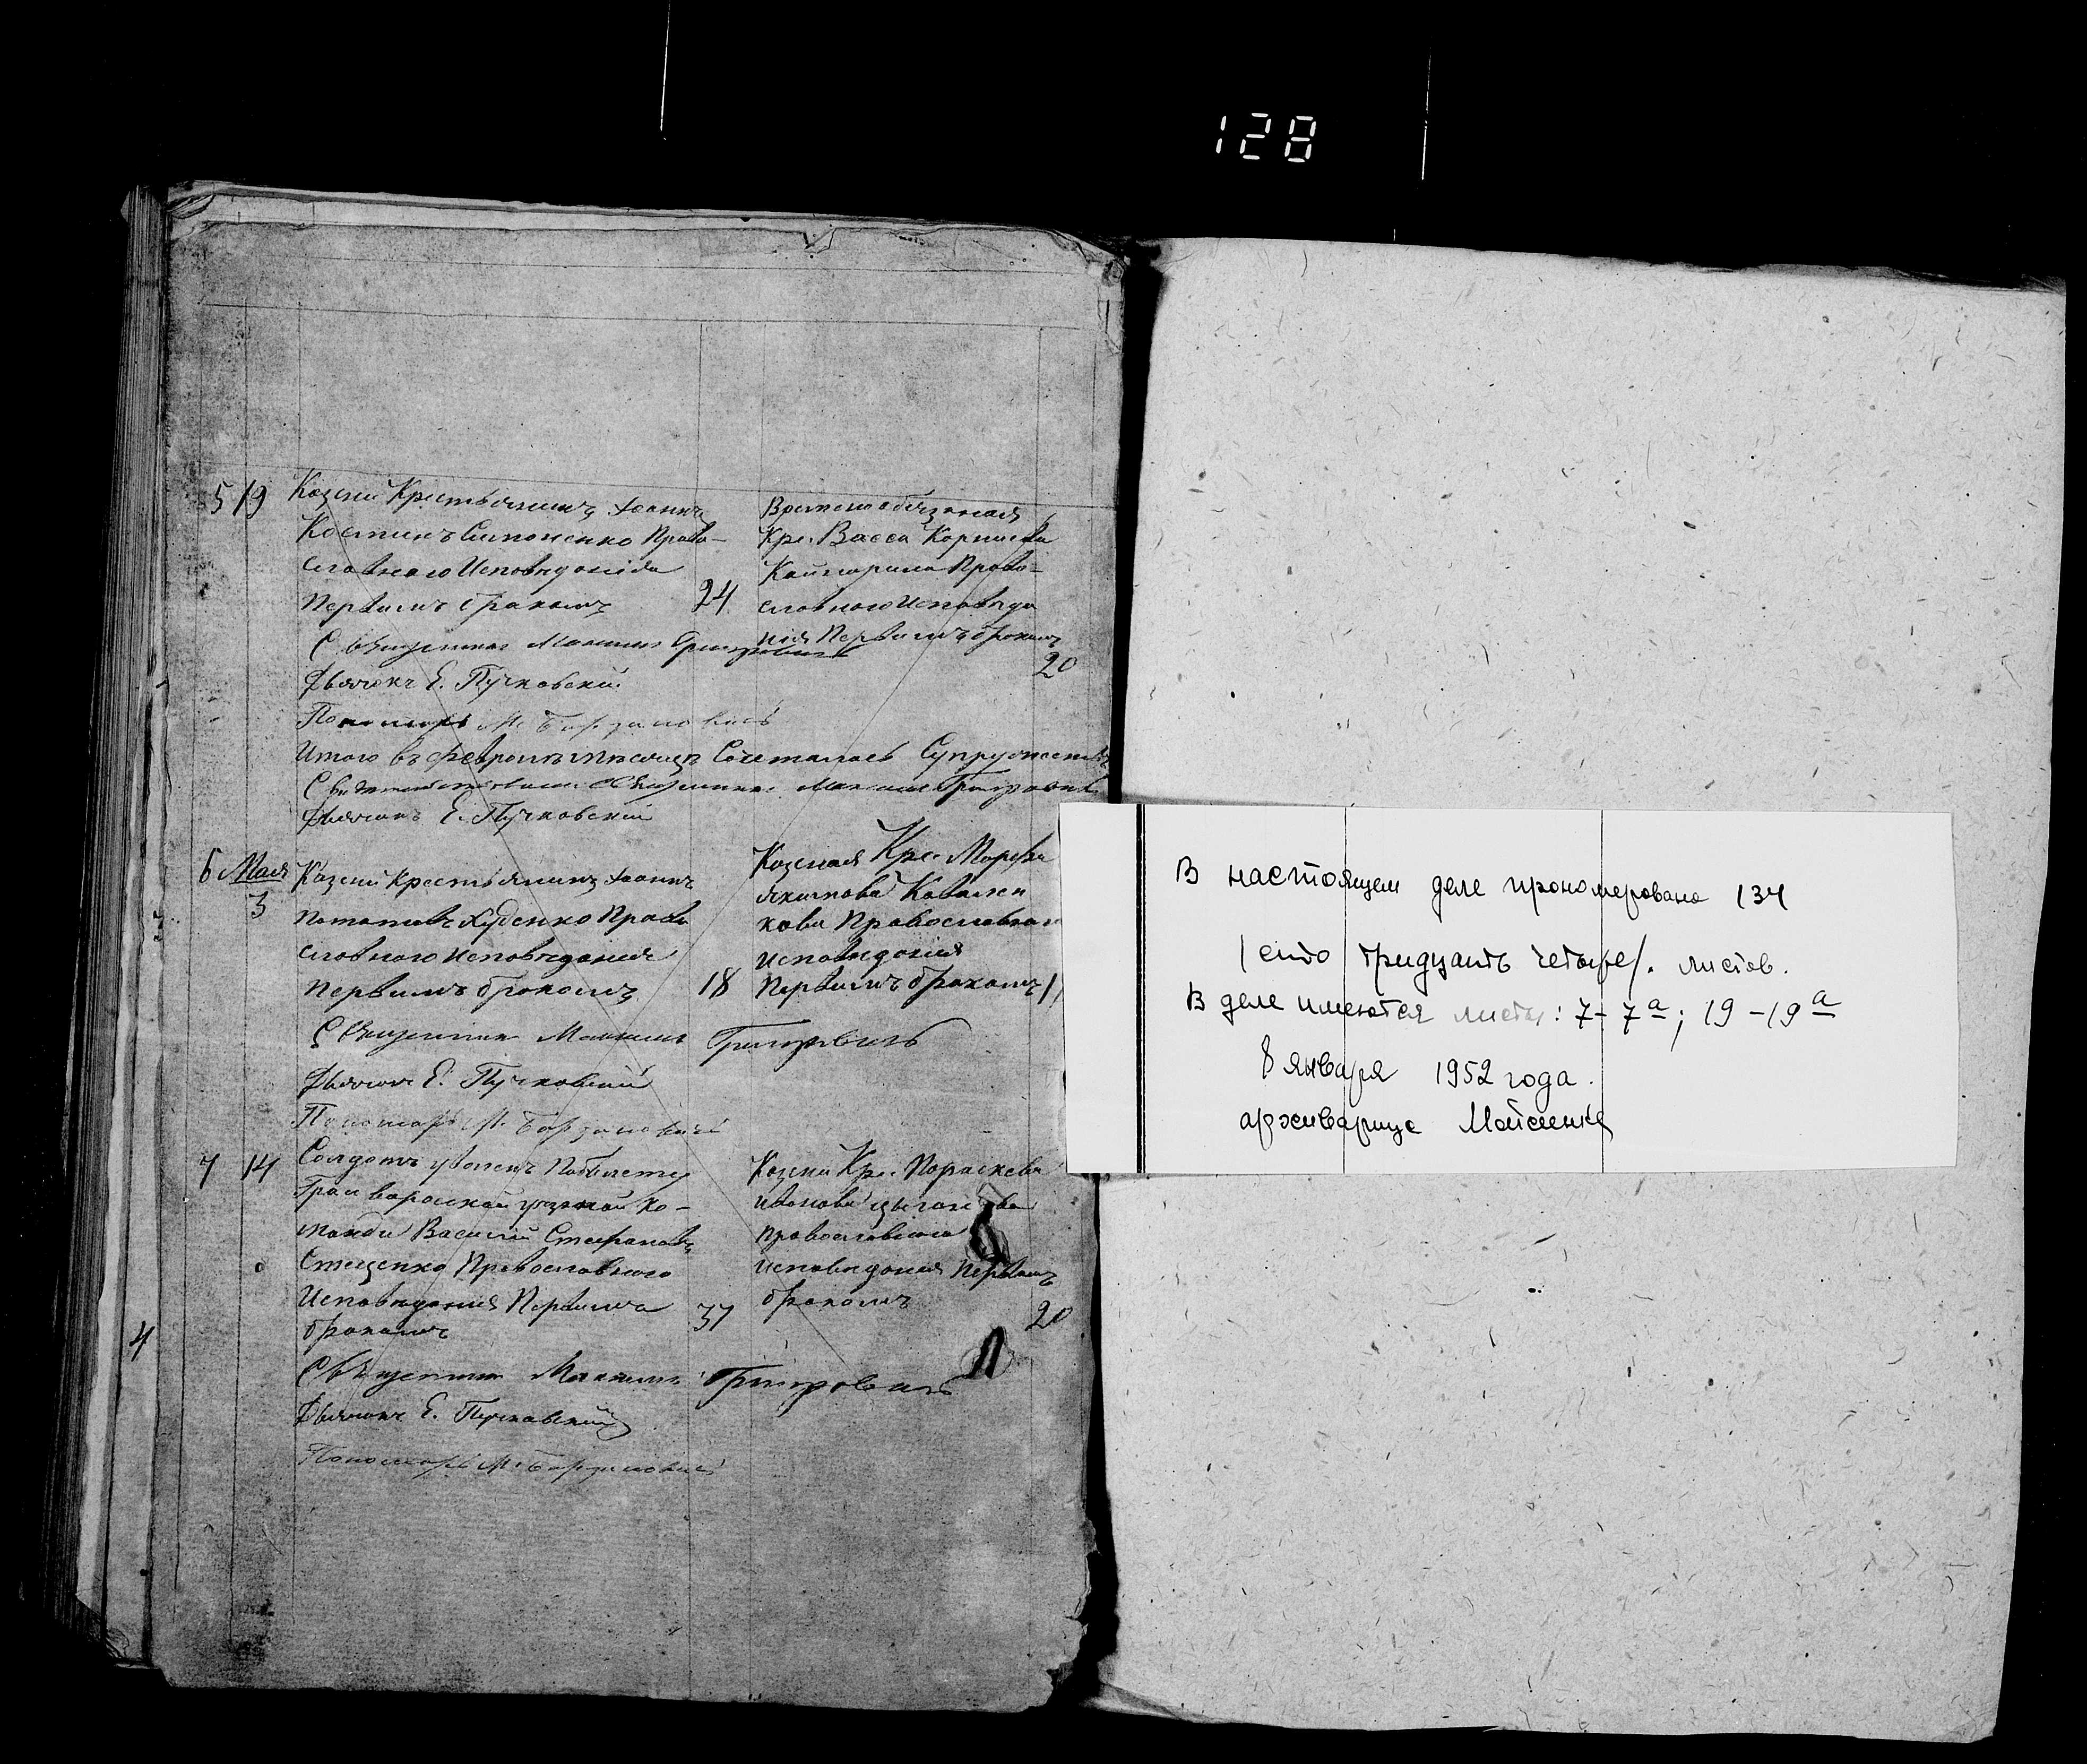 128
5 19 Казен: Крестьянинъ Іоаннъ
Костинъ Симоненко Право-
славнаго Исповѣданія
Первымъ бракомъ 24
Временнообязанная
Кре. Васса Корниева
Право-
славнаго Исповѣда
нія Первымъ бракомъ
20
Священникъ Максимъ Григоровичъ
Дьячокъ Е. Пучковскій
Пономарь М.
Итого въ Февралѣ мѣсяцѣ Сочеталось Супружест
Священникъ Максимъ Григоровичъ
Дьячокъ Е. Пучковскій
6 Мая
3
Казен: Крестьянинъ Іоаннъ
Потаповъ Худенко Право
славнаго Исповѣданія
Первымъ бракомъ 18
Казеная Кре. Марфа
Якимова
Православнаго
Исповѣданія
Первымъ бракомъ
Священникъ Максимъ Григоровичъ
Дьячокъ Е. Пучковскій
Пономарь М.
7 14 Солдатъ уволен: по билету
ко-
манды Василій Стефановъ
Стеценко Православнаго
Исповѣданія Первымъ
бракомъ 37
Казен: Кре. Параскева
Иванова
Православнаго
Исповѣданія Первымъ
бракомъ
20
4
Священникъ Максимъ Григоровичъ
Дьячокъ Е. Пучковскій
Пономарь М.
В настоящем деле прономеровано 134
/сто тридцать четыре/. листов.
В деле имеются листы: 7-7а; 19-19а
8 января 1952 года.